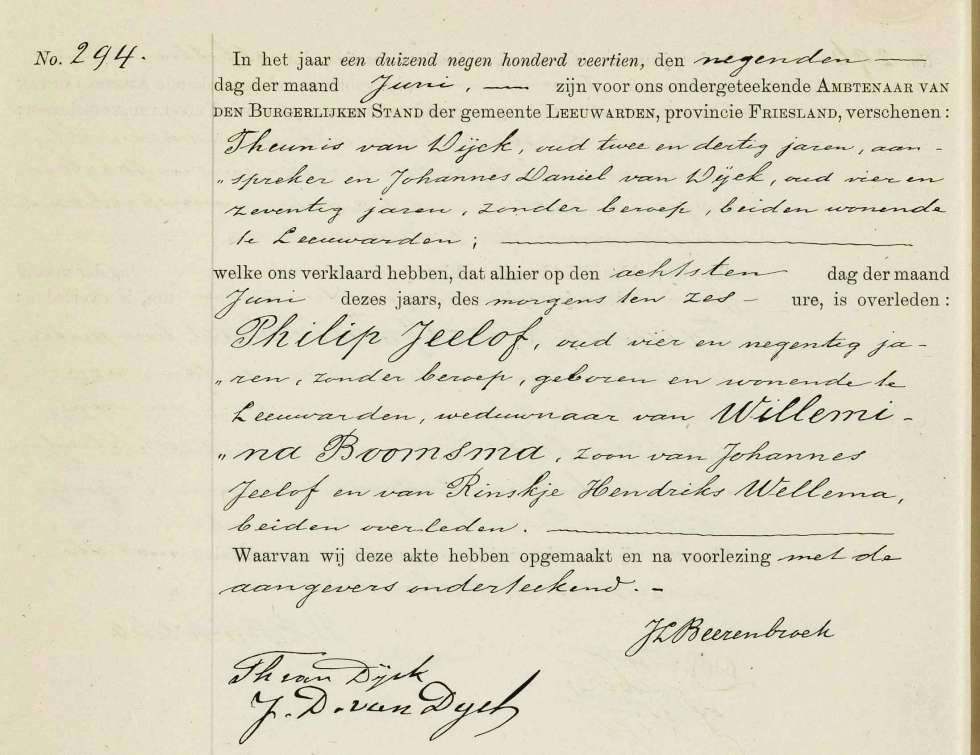 No. 294.
In het jaar een duizend negen honderd veertien, den negenden —
dag der maand Juni, — zijn voor ons ondergeteekende AMBTENAAR VAN
DEN BURGERLIJKEN STAND der gemeente LEEUWARDEN, provincie FRIESLAND, verschenen:
Theunis van Dijck, oud twee en dertig jaren, aan-
"spreker en Johannes Daniel van Dijck, oud vier en
zeventig jaren, zonder beroep, beiden wonende
te Leeuwarden; —
welke ons verklaard hebben, dat alhier op den achtsten dag der maand
Juni dezes jaars, des morgens ten zes – ure, is overleden:
Philip Jeelof, oud vier en negentig ja-
"ren, zonder beroep, geboren en wonende te
Leeuwarden, weduwnaar van Willemi-
"na Boomsma, zoon van Johannes
Jeelof en van Rinskje Hendriks Wellema,
beiden overleden. —
Waarvan wij deze akte hebben opgemaakt en na voorlezing met de
aangevers onderteekend. –
JLBeerenbroek
Th van Dijck
J. D. van Dyck